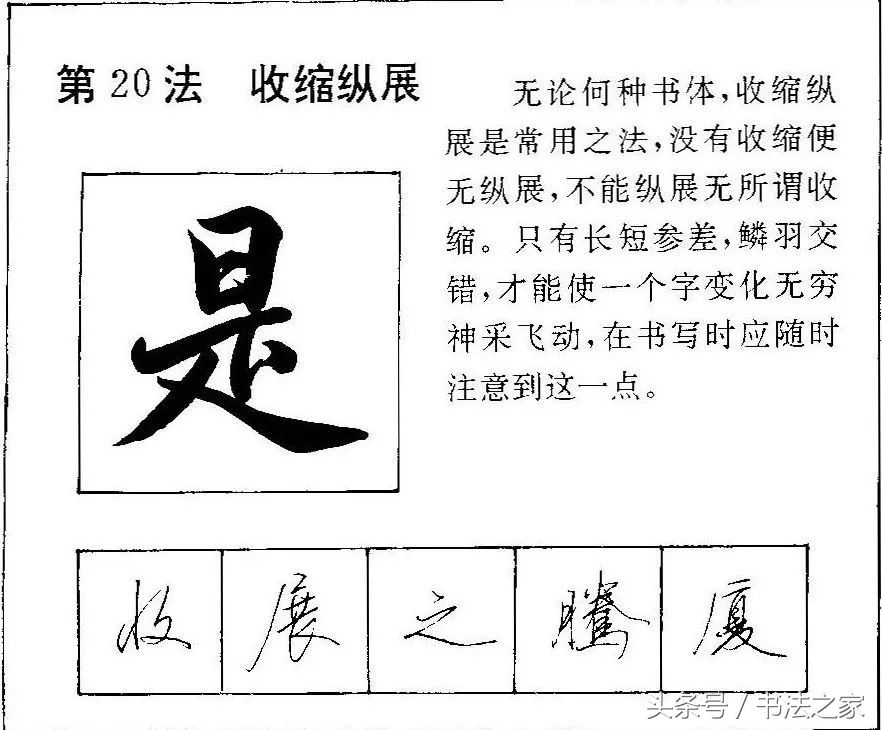 第20法 收缩纵展
无论何种书体,收缩纵
展是常用之法,没有收缩便
无纵展,不能纵展无所谓收
缩。只有长短参差,鳞羽交
错,才能使一个字变化无穷
神采飞动,在书写时应随时
注意到这一点。
是
收 展 之 騰 厦
头条号 / 书法之家